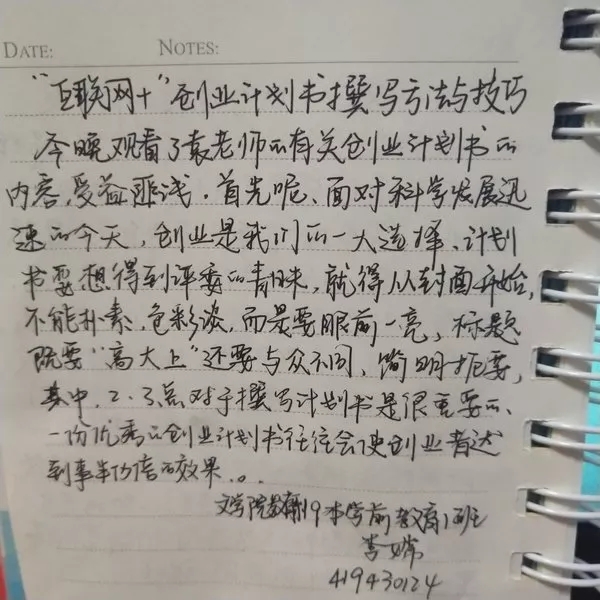 DATE: NOTES:
“互联网+”创业计划书撰写方法与技巧
今晚观看了袁老师的有关创业计划书的
内容,受益匪浅。首先呢、面对科学发展迅
速的今天,创业是我们的一大选择、计划
书要想得到评委的青睐,就得从封面开始,
不能朴素,色彩淡,而是要眼前一亮,标题
既要“高大上”还要与众不同、简明扼要,
其中,2、3点对于撰写计划书是很重要的、
一份优秀的创业计划书往往会使创业者达
到事半功倍的效果。。
文学院 19本学前教育1班
李嫦
419430124